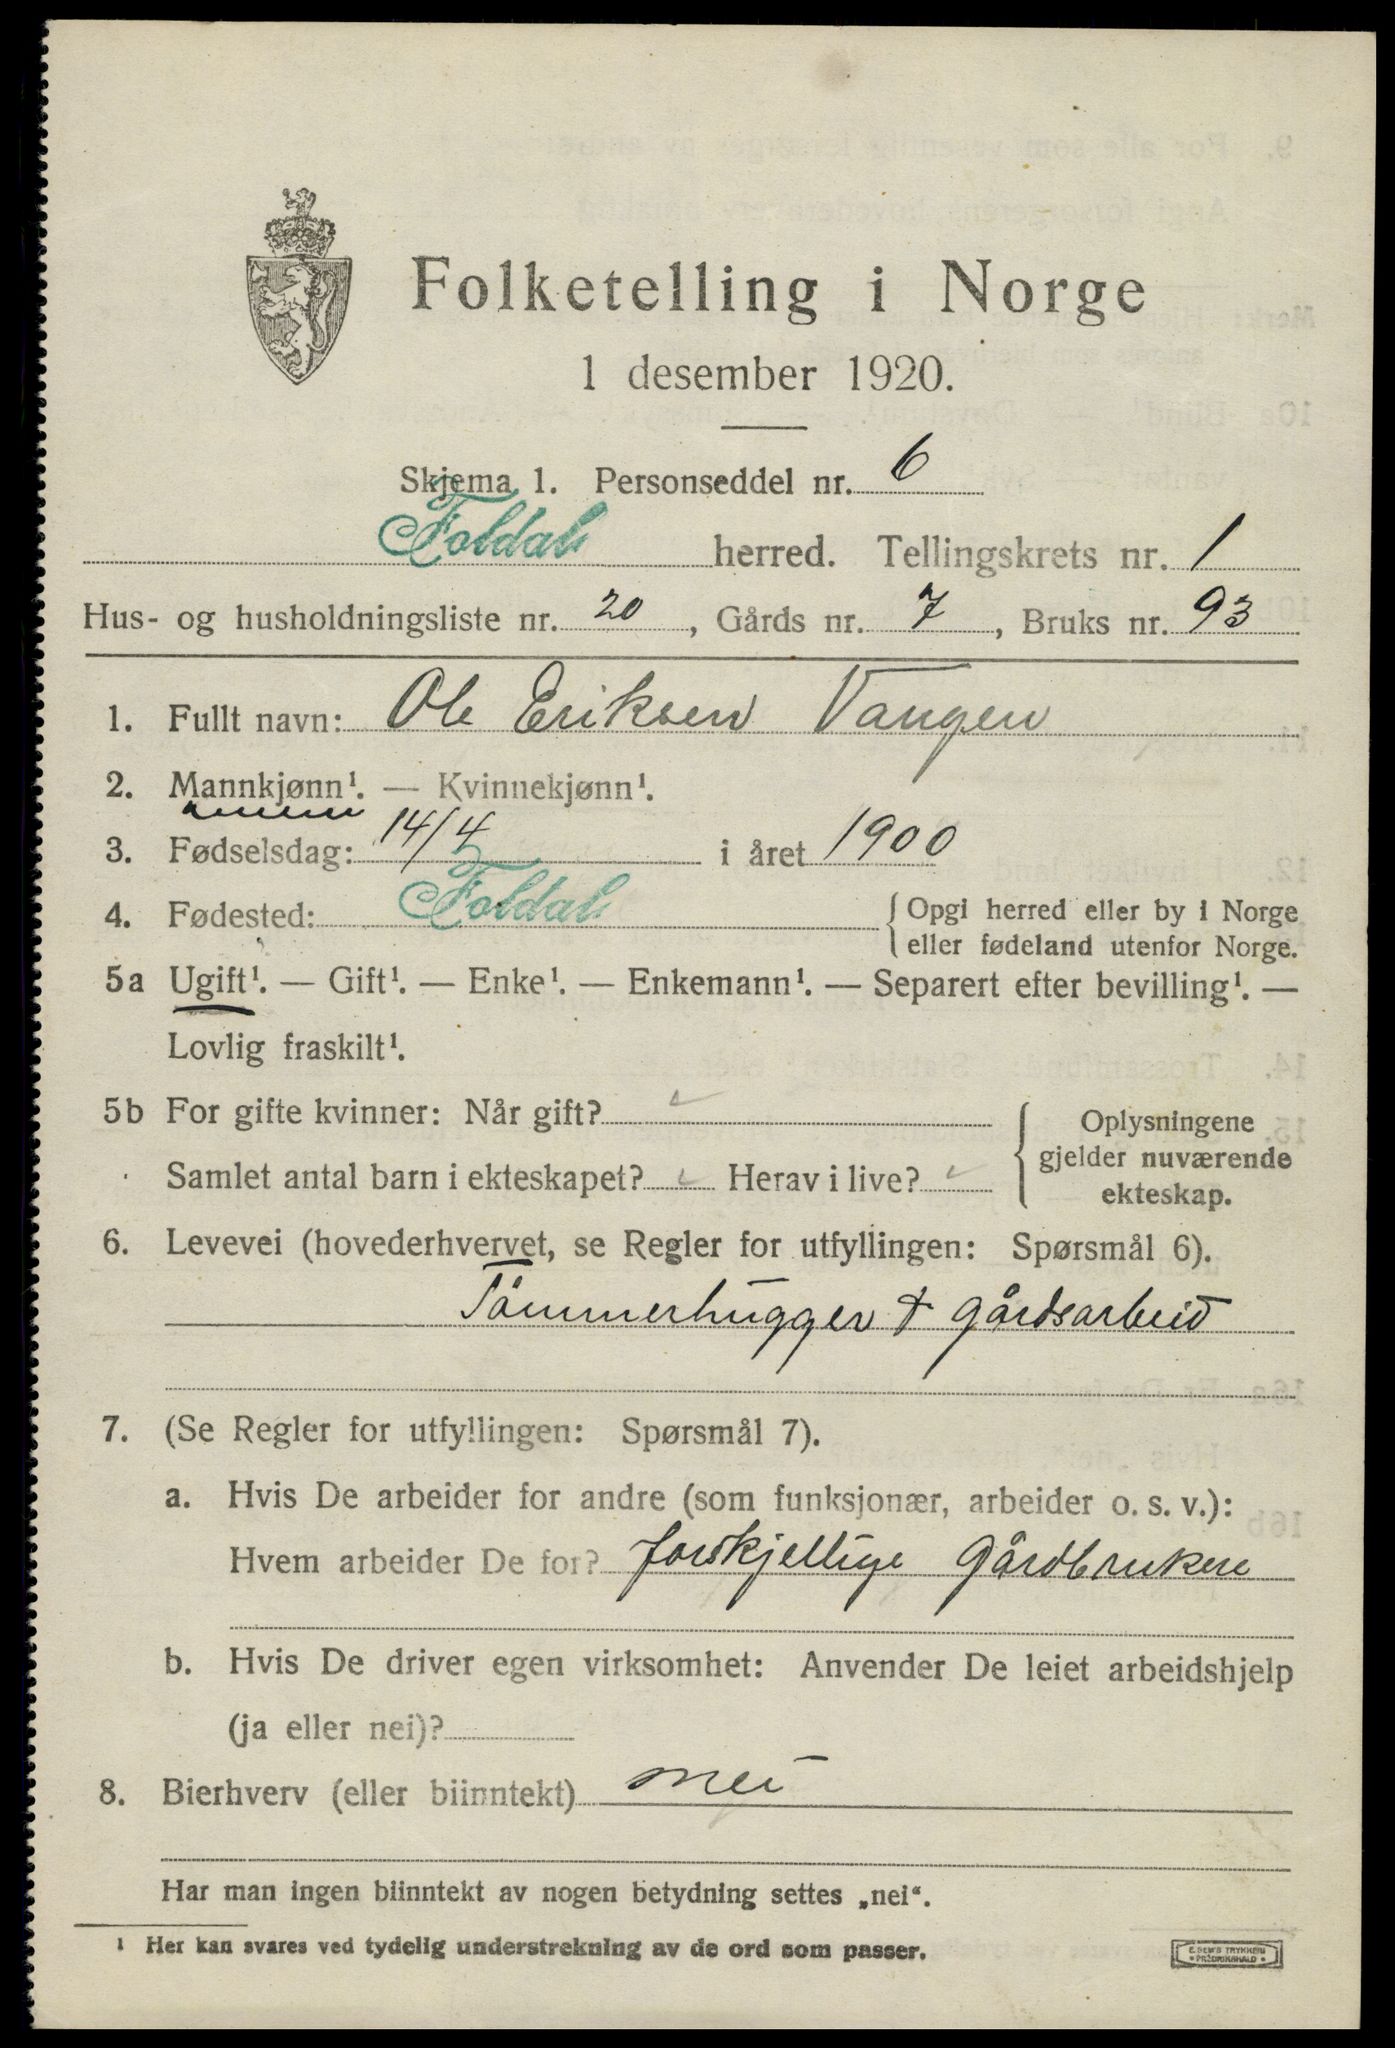 Folketelling i Norge
1 desember 1920.
Skjema 1. Personseddel nr. 6
Foldal herred. Tellingskrets nr. 1
Hus- og husholdningsliste nr. 20, Gårds nr. 7, Bruks nr. 93
1. Fullt navn: Ole Eriksen Vangen
2. Mannkjønn¹. — Kvinnekjønn¹.
3. Fødselsdag: 14/4 i året 1900
4. Fødested: Foldal {Opgi herred eller by i Norge
eller fødeland utenfor Norge.
5a Ugift¹. — Gift¹. — Enke¹. — Enkemann¹. — Separert efter bevilling¹. —
Lovlig fraskilt¹.
5b For gifte kvinner: Når gift? Oplysningene
gjelder nuværende
Samlet antal barn i ekteskapet? Herav i live? ekteskap.
6. Levevei (hovederhvervet, se Regler for utfyllingen: Spørsmål 6).
Tömmerhugger & gårdsarbeid
7. (Se Regler for utfyllingen: Spørsmål 7).
a. Hvis De arbeider for andre (som funksjonær, arbeider o. s. v.):
Hvem arbeider De for? forskjellige Gårdbrukere
b. Hvis De driver egen virksomhet: Anvender De leiet arbeidshjelp
(ja eller nei)?
8. Bierhverv (eller biinntekt) nei
Har man ingen biinntekt av nogen betydning settes „nei“.
¹ Her kan svares ved tydelig understrekning av de ord som passer.
E. SEM'S TRYKKERI
FREDRIKSHALD